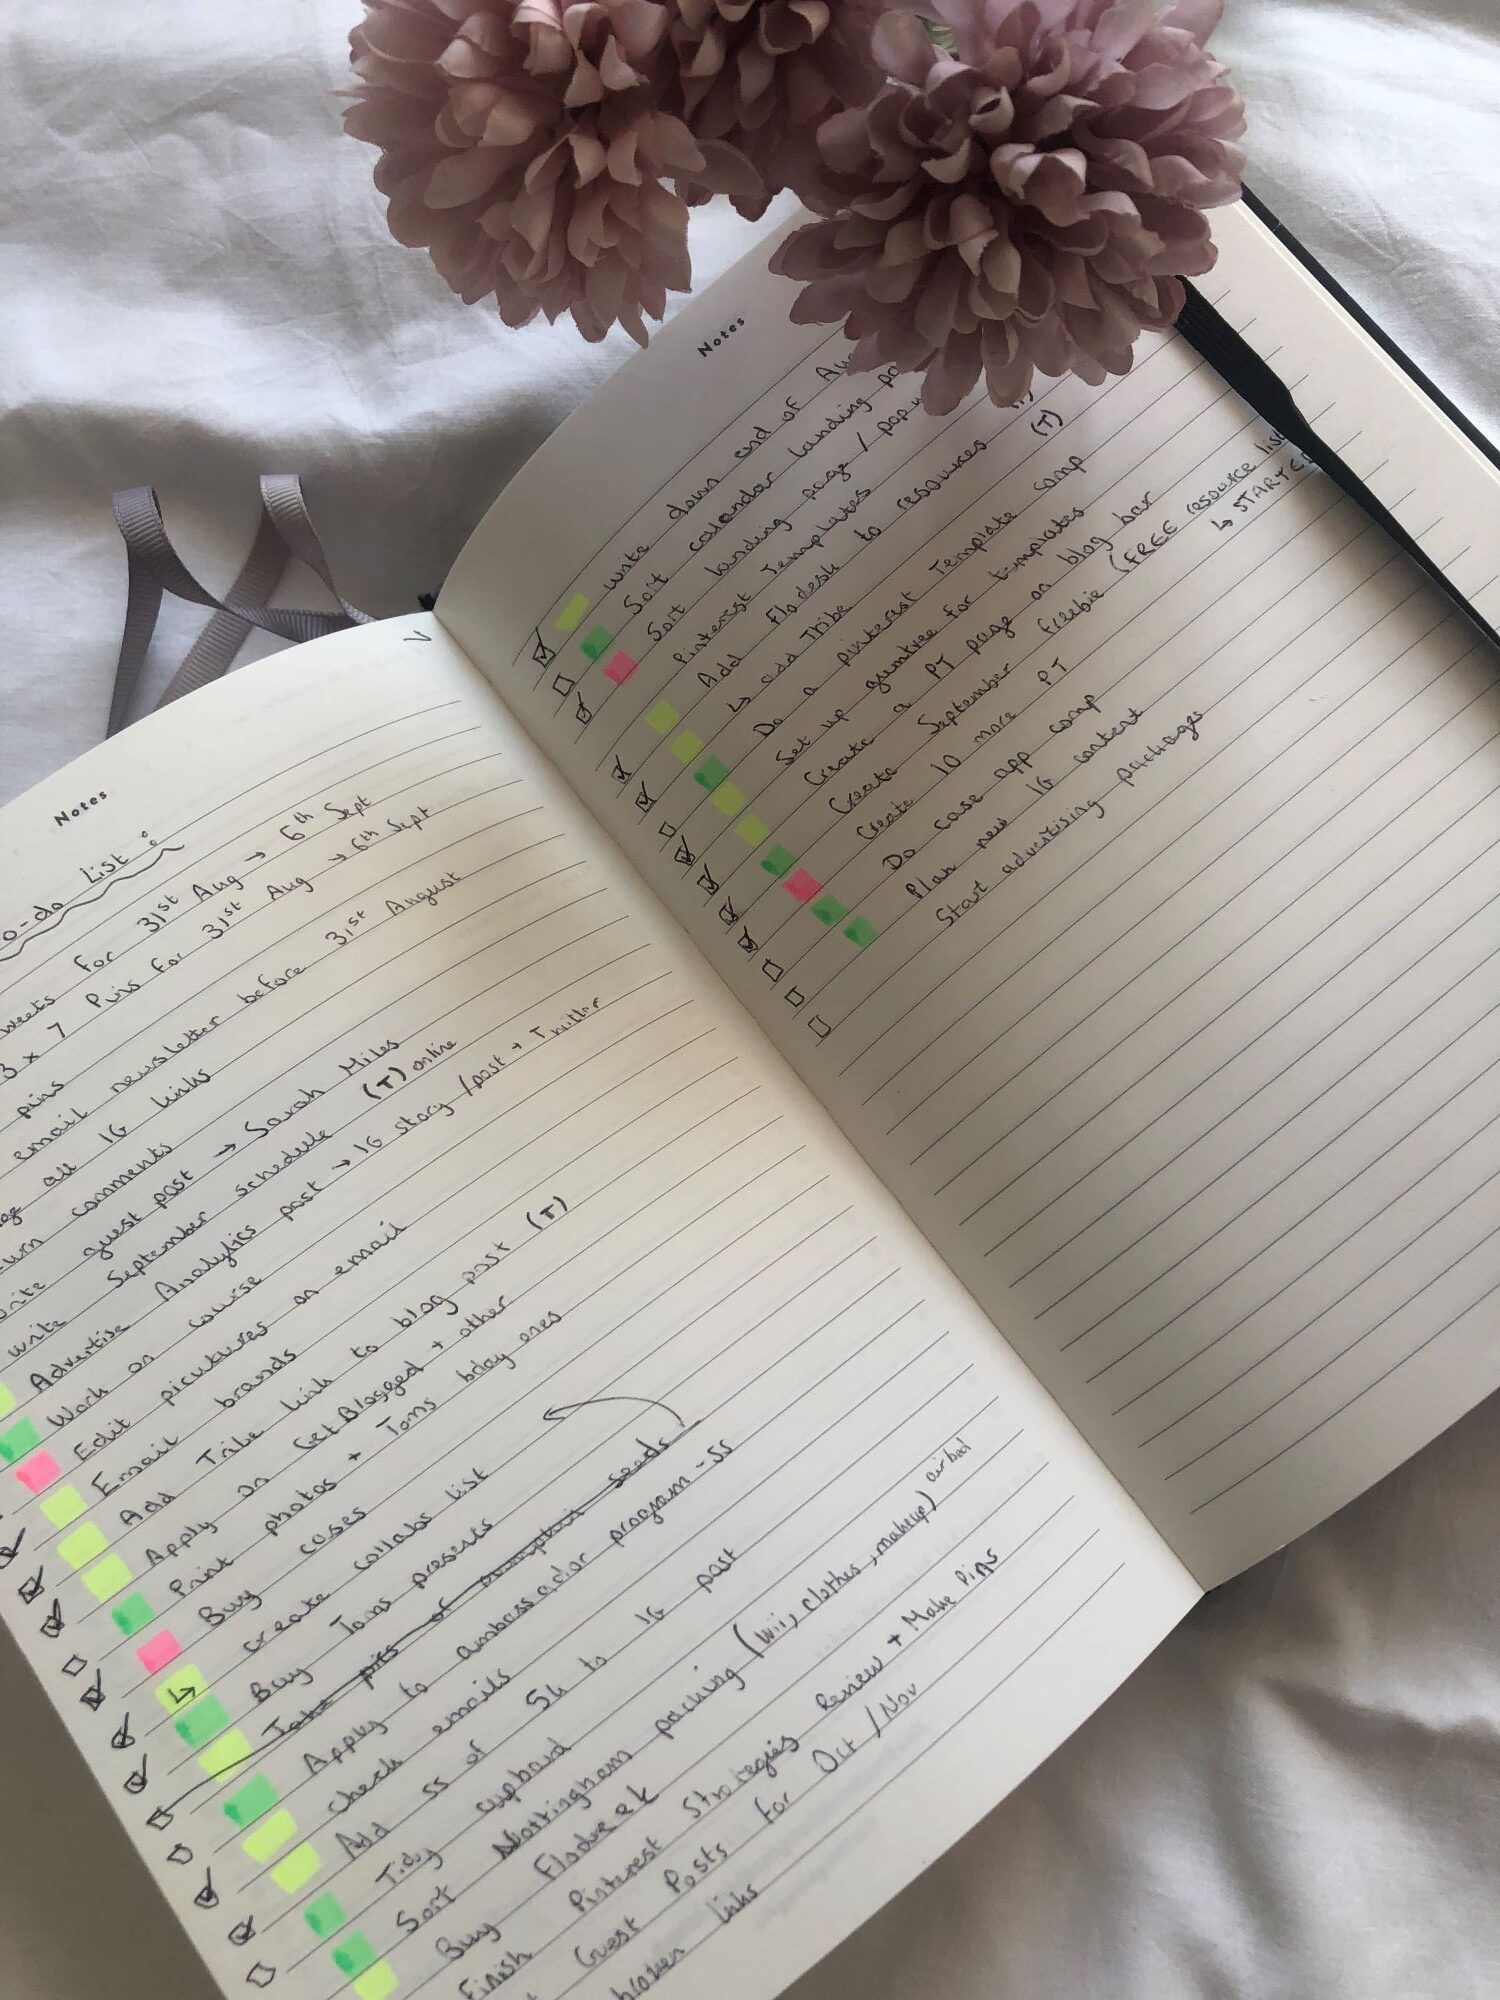 Notes
o-do List :
weets for 31st Aug → 6th Sept
3 x 7 Pins for 31st Aug → 6th Sept
pins
email newsletter before 31st August
ge all IG links
turn comments
write guest post → Sarah Miles
write September schedule (T) online
Advertise Analytics post → IG story / post + Twitter
Work on course
Edit picutures on email
Email brands
Add Tribe link to blog post (T)
Apply on Get Blogged + other
Print photos + Toms bday ones
Buy cases
↳ create collabs list
Buy Toms presents
Take pics of pumpkin seeds
Apply to ambassador program - SS
Check emails
Add ss of 5k to IG post
Tidy cupboard
Sort Nottingham packing (Wii, clothes, makeup) air bed
Buy Flodesk
Finish Pinterest Strategies Review + Make Pins
Guest Posts for Oct / Nov
broken links
Notes
write down end of Au
Sort calendar landing pa
Sort landing page / pop u
Pinterest Templates
Add Flodesk to resources (T)
↳ add Tribe (T)
Do a pinterest Template comp
Set up gumtree for templates
Create a PT page on blog bar
Create September freebie (FREE resource lis
↳ START
Create 10 more PT
Do case app comp
Plan new IG content
Start advertising packages